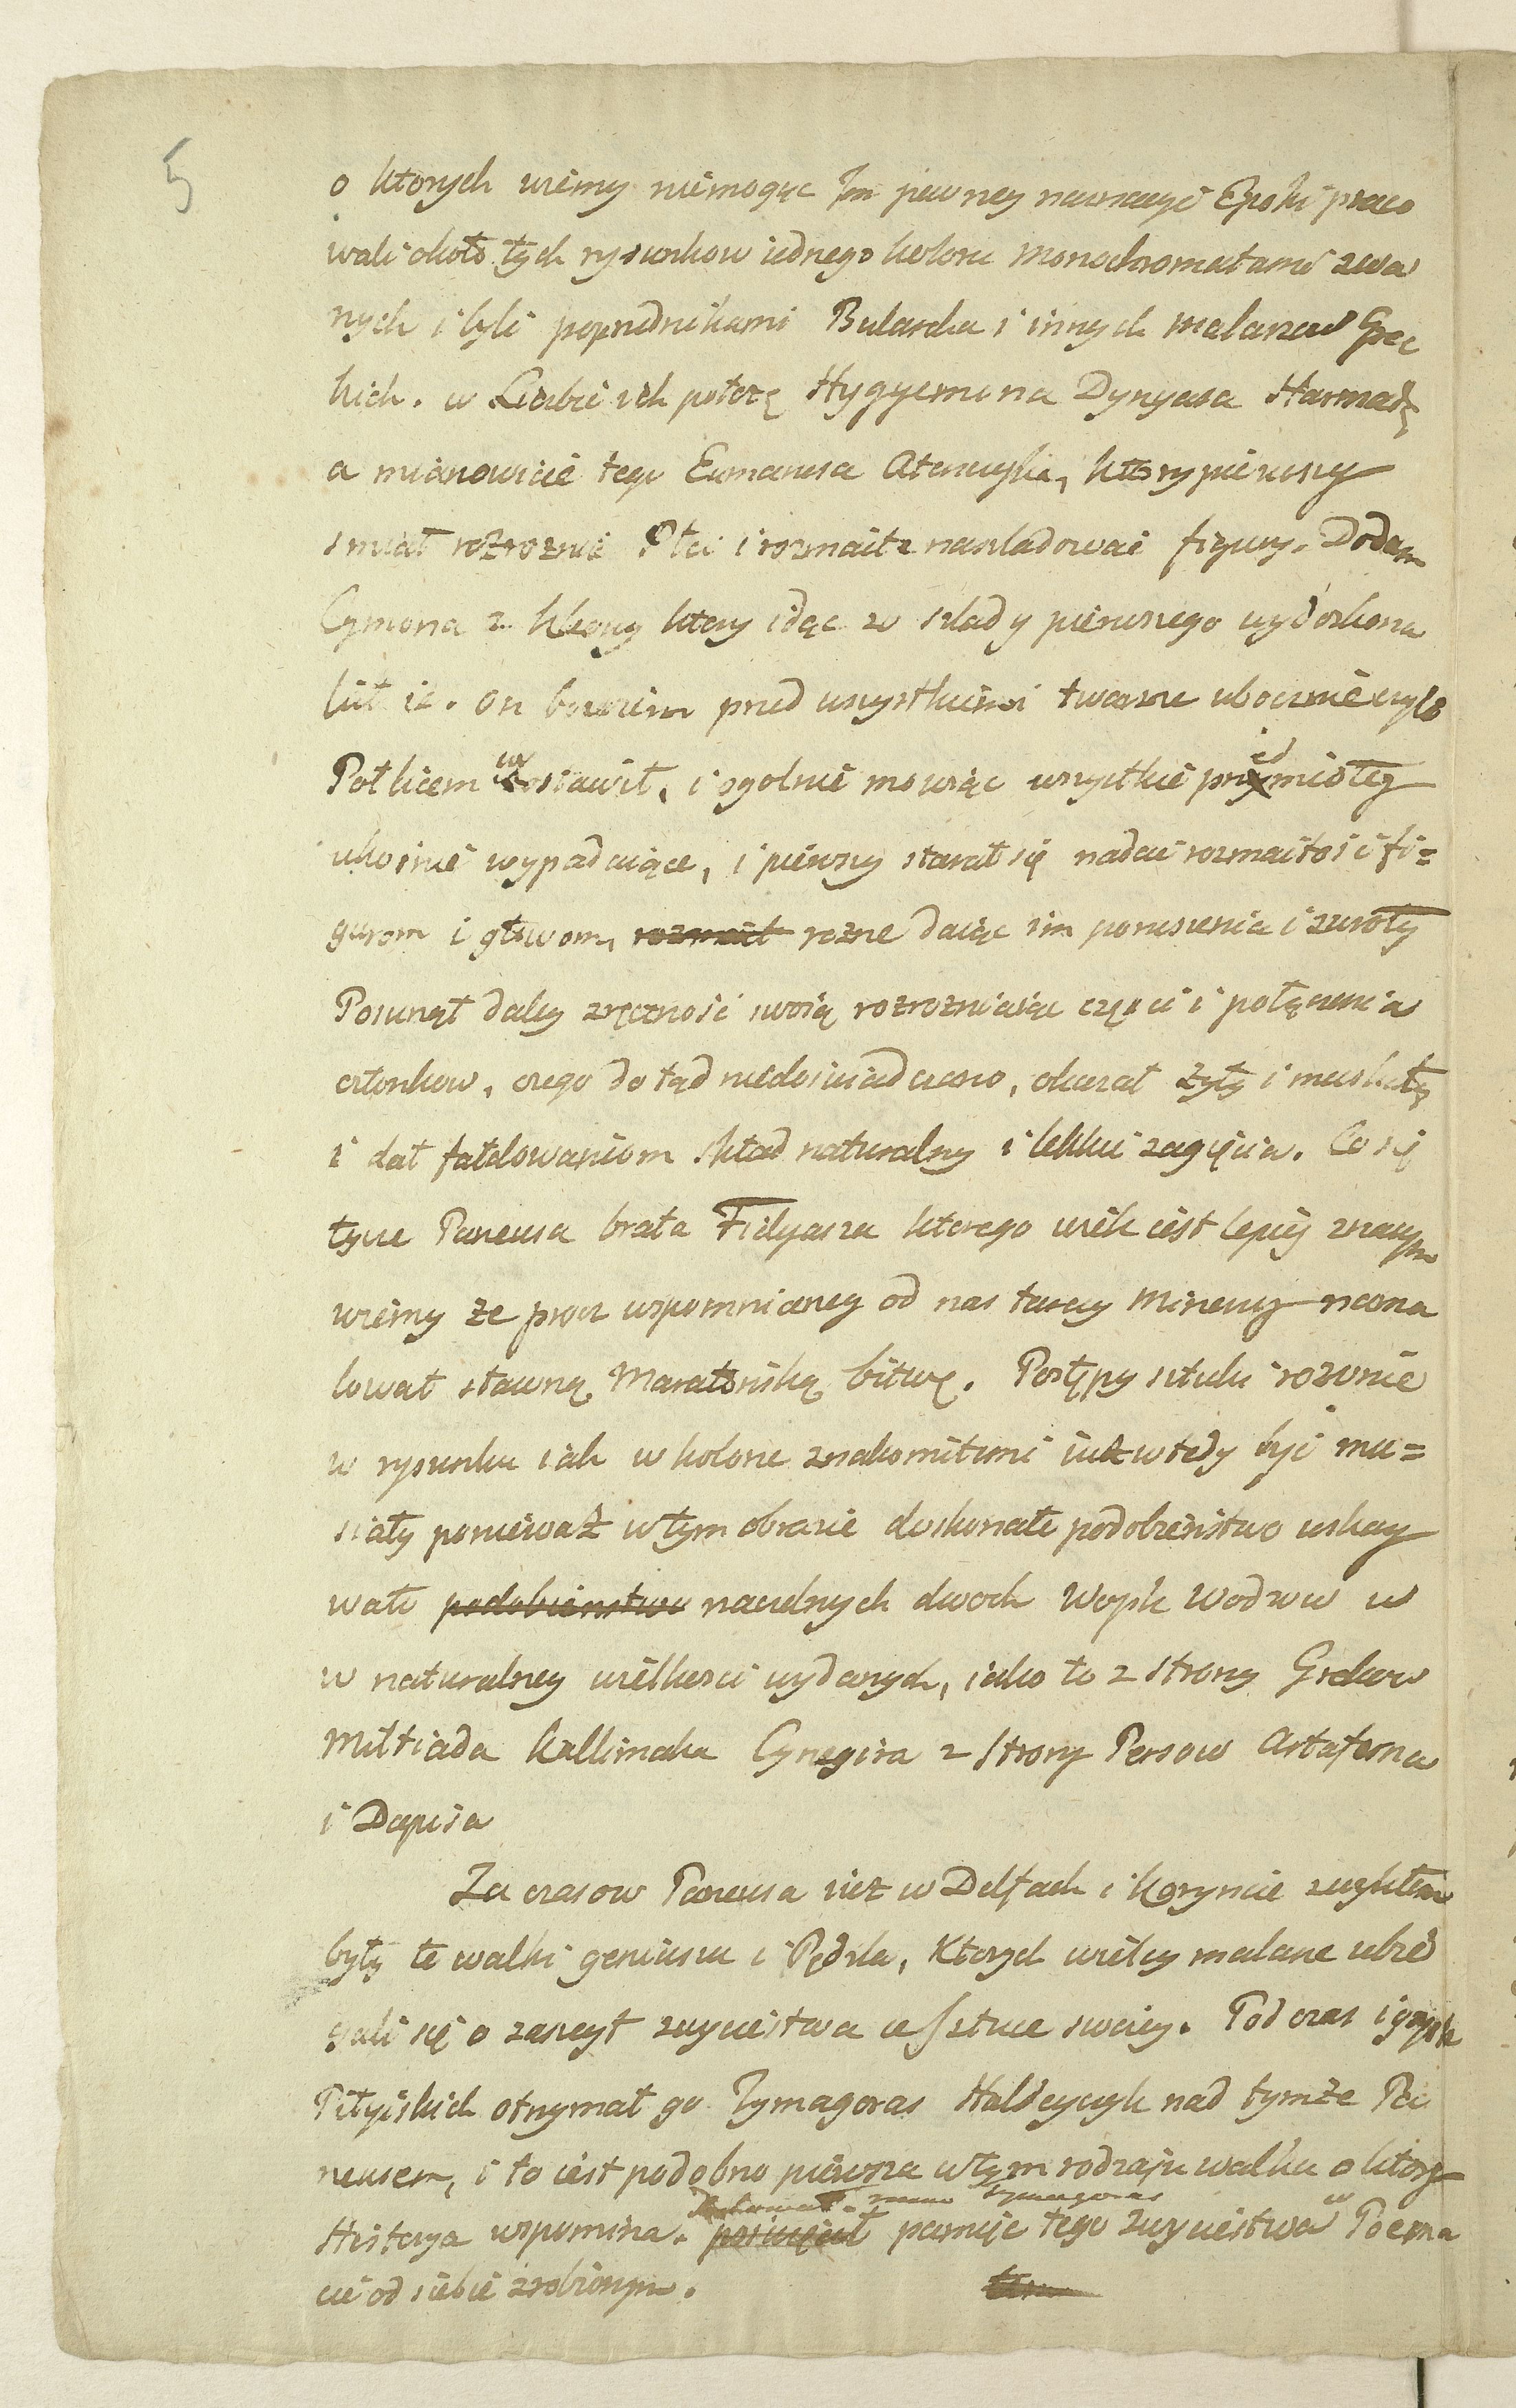 5
o ktorych wiemy niemogąc Im pewney naznaczyć Epoki praco
wali około tych rysunkow iednego koloru monochromatami zwa
nych i byli poprzednikami Bularcha i innych malarzow Grec
kich. w Liczbie ich położę Hygyemona Dynyasa Harmadę
a mianowicie tego Eumarusa Atenczyka, ktory pierwszy
smiał rozroznić Płci i rozmaite nasladować figury. Dodam
Cymona z Kleony ktory idąc w slady pierwszego wydoskona
lił ie. On bowiem przed wszystkiemi twarze ubocznie czyli
Pół licem wystawił, i ogolnie mowiąc wszystkie przedmioty
ukosnie wypadaiące, i pierwszy starał się nadać rozmaitość fi=
gurom i głowom, rozmait rozne daiąc im poruszenia i zwroty
Posunął daley zręczność swoią rozrozniaiąc części i połączenia
członkow, czego do tąd niedoswiadczano, okazał żyły i muskuły
i dał fałdowaniom skład naturalny i lekkie zagięcia. Co się
tycze Paneusa brata Fidyasza ktorego wiek iest lepiey znaiomy
wiemy że procz wspomnioney od nas tarczy Minerwy nama
lował sławną Maratońską bitwę. Postępy sztuki rownie
w rysunku iak w kolorze znakomitemi iuż wtedy być mu=
siały ponieważ w tym obrazie doskonałe podobieństwo wskazy
wało podobieństwo naczelnych dwoch Woysk Wodzow w
w naturalney wielkości wydanych, iako to z strony Grekow
Miltiada Kallimaka Cynegira z strony Persow Artaferna
i Dapisa
Za czasow Paneusa iuż w Delfach i Koryncie zwykłem
były te walki geniuszu i Pędzla, Ktorych wielcy malarze ubie
gali się o zaszczyt zwycięstwa w sztuce swoiey. Pod czas igrzysk
Pityiskich otrzymał go Tymagoras Halceyczyk nad tymże Pa
neusem, i to iest podobno pierwsza w tym rodzaju walka o ktorey
Tymagoras
Historya wspomina. poswięcił pamięć tego zwycięstwa w Poema
cie od siebie zrobionym.